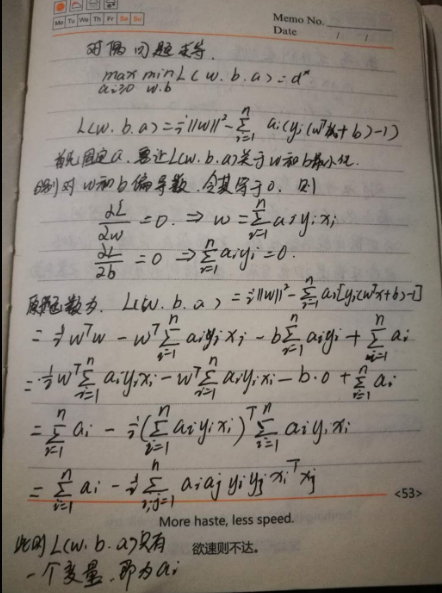 Memo No.
Mo Tu We Th Fr Sa Su
Date / /
对偶问题求导.
max min L(w.b.a)=d*
ai≥0 w.b
L(w.b.a)=½||w||²-∑ᵢ₌₁ⁿ ai(yi(wᵀxi+b)-1)
首先固定a.要让L(w.b.a)关于w和b最小化.
则对w和b偏导数,令其等于0.则
∂L/∂w=0.⇒w=∑ᵢ₌₁ⁿaiyixi
∂L/∂b=0⇒∑ᵢ₌₁ⁿaiyi=0.
原函数为. L(w.b.a)=½||w||²-∑ᵢ₌₁ⁿai[yi(wᵀx+b)-1]
=½wᵀw-wᵀ∑ᵢ₌₁ⁿaiyixi-b∑ᵢ₌₁ⁿaiyi+∑ᵢ₌₁ⁿai
=½wᵀ∑ᵢ₌₁ⁿaiyixi-wᵀ∑ᵢ₌₁ⁿaiyixi-b·0+∑ᵢ₌₁ⁿai
=∑ᵢ₌₁ⁿai-½(∑ᵢ₌₁ⁿaiyixi)ᵀ∑ᵢ₌₁ⁿaiyixi
=∑ᵢ₌₁ⁿai-½∑ᵢ,ⱼ₌₁ⁿaiajyiyjxiᵀxj
<53>
More haste, less speed.
欲速则不达。
此时L(w.b.a)只有
一个变量.即为ai